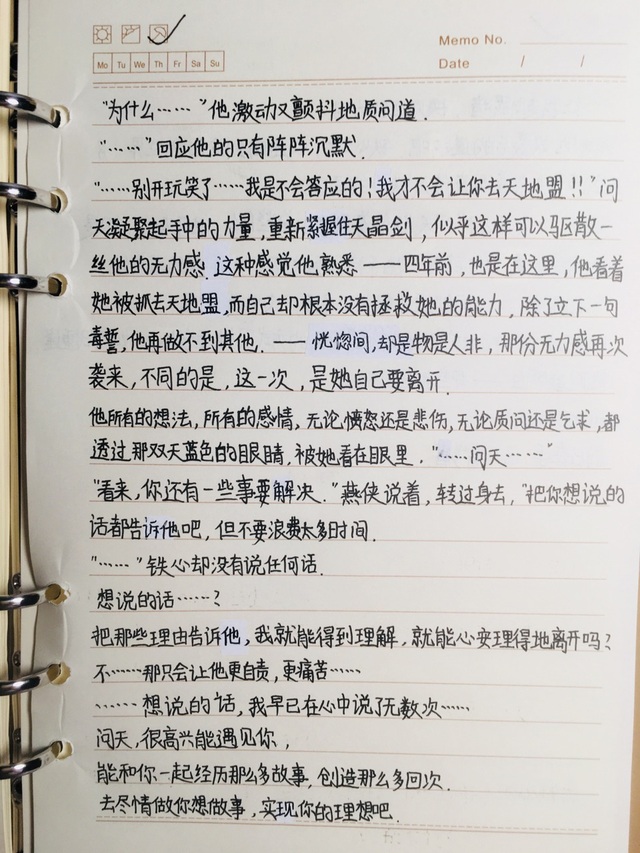 Memo No.
Mo Tu We Th Fr Sa Su
Date / /
“为什么……”他激动又颤抖地质问道.
“……”回应他的只有阵阵沉默.
“……别开玩笑了……我是不会答应的!我才不会让你去天地盟!!”问
天凝聚起手中的力量,重新紧握住天晶剑,似乎这样可以驱散一
丝他的无力感.这种感觉他熟悉——四年前,也是在这里,他看着
她被抓去天地盟,而自己却根本没有拯救她的能力,除了立下一句
毒誓,他再做不到其他.——恍惚间,却是物是人非,那份无力感再次
袭来,不同的是,这一次,是她自己要离开.
他所有的想法,所有的感情,无论愤怒还是悲伤,无论质问还是乞求,都
透过那双天蓝色的眼睛,被她看在眼里.“……问天……”
“看来,你还有一些事要解决.”燕侠说着,转过身去,“把你想说的
话都告诉他吧,但不要浪费太多时间.
“……”铁心却没有说任何话.
想说的话……?
把那些理由告诉他,我就能得到理解,就能心安理得地离开吗?
不……那只会让他更自责,更痛苦……
……想说的话,我早已在心中说了无数次……
问天,很高兴能遇见你,
能和你一起经历那么多故事,创造那么多回次.
去尽情做你想做事,实现你的理想吧.